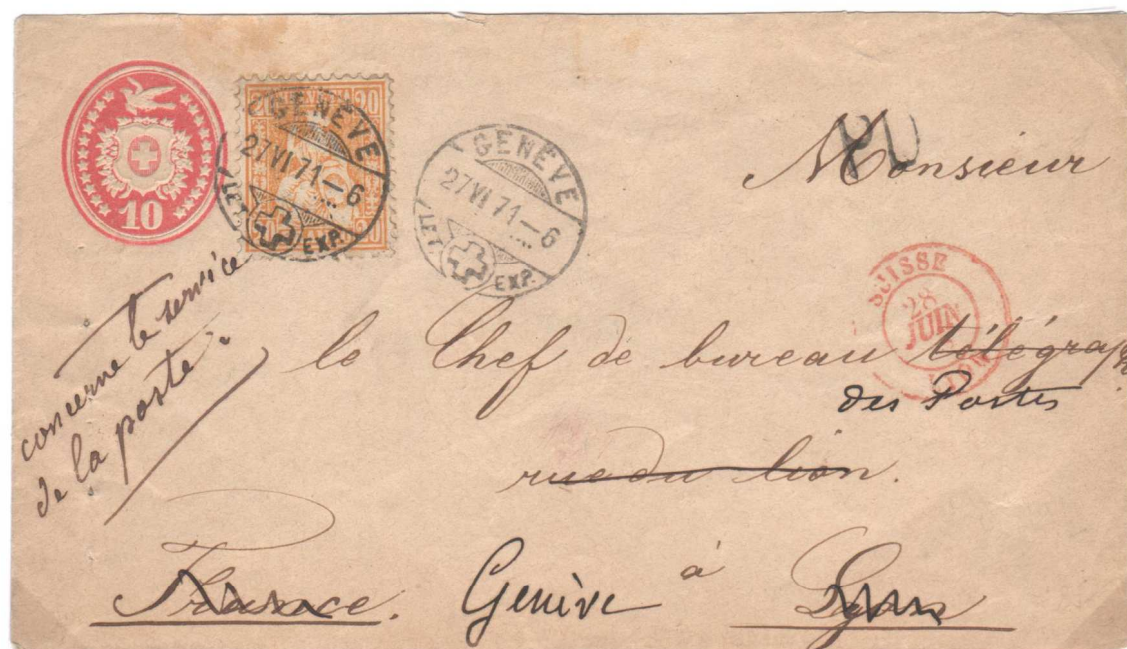 10
20
20
GENÈVE
27 VI 71—6
LET. EXP.
GENÈVE
27 VI 71—6
LET. EXP.
Monsieur
SUISSE
28
JUIN
concerne le service
de la poste.
le Chef de bureau télégraph
des Postes
rue du lion.
France. Genève à Lyon